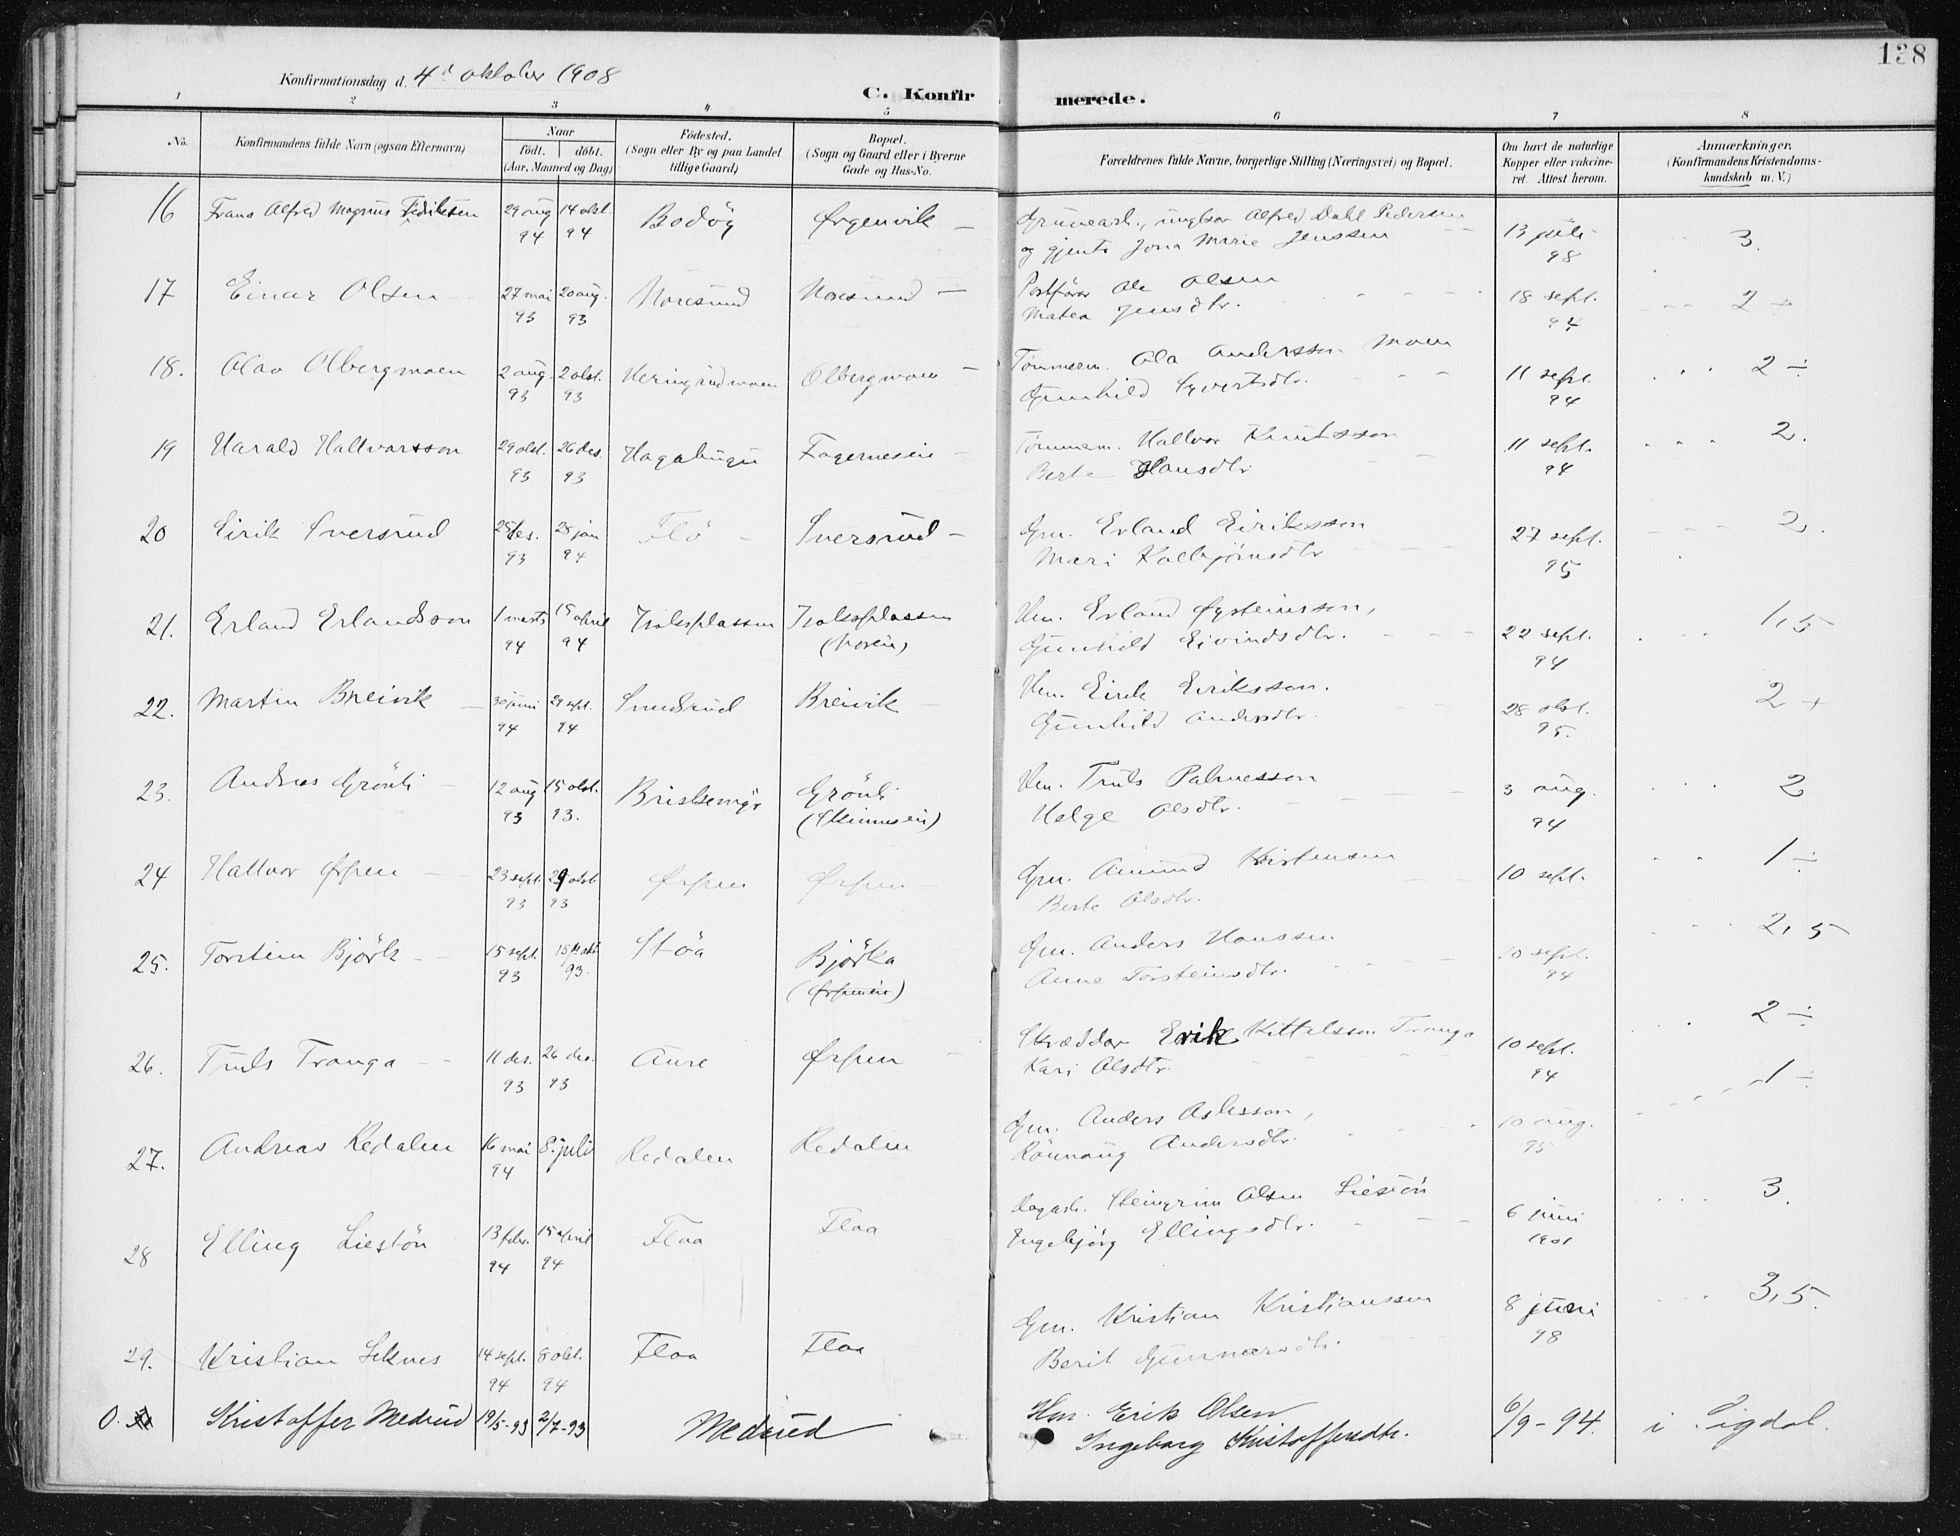 138
Konfirmationsdag d. 4d oktober 1908
C. Konfirmerede.
1 2 3 4 5 6 7 8
No. Konfirmandens fulde Navn (ogsaa Efternavn) Naar födt. döbt. (Aar, Maaned og Dag) Födested. (Sogn eller By og paa Landet tillige Gaard) Bopæl. (Sogn og Gaard eller i Byerne Gade og Hus-No. Forældrenes fulde Navne, borgerlige Stilling (Næringsvei) og Bopæl. Om havt de naturlige Kopper eller vakcineret. Attest herom. Anmærkninger. (Konfirmandens Kristendomskundskab m. V.)
16 Frans Alfred Magnus 29 aug 94 14 okt. 94 Bodög Ørgenvik — Alfred Dahl Pedersen 13 juli 98 3.
og gjente Jona Marie Jenssen
17 Einar Olsen 27 mai 93 20 aug. 93 Noresund Noresund — Postförer Ole Olsen 18 sept. 94 2 ÷
Matea Jensdtr.
18. Olav Olbergmoen 2 aug. 93 2 okt. 93 Olbergmoen — Tömmerm. Ola Andersson Moen 11 sept. 94 2 ÷
Gunhild Syvertsdtr.
19 Harald Hallvarsson 29 okt. 93 26 des. 93 Fagerneseie — Tömmerm. Hallvor Knutsson 11 sept. 94 2.
Berte Hansdtr
20 Eirik Sversrud 25 des. 93 28 jan 94 Flö — Sversrud — Gm. Erland Eiriksson 27 sept. 95 2.
Mari Kolbjörnsdtr
21. Erland Erlandson 1 marts 94 15 april 94 Hm. Erland Øysteinsson, 22 sept. 94 1,5
Gunhild Eivindsdtr.
22. Martin Breivik 30 juni 94 29 sept. 94 Smedsrud Breivik Hm. Eirik Eiriksson. 28 okt. 95. 2 +
Gunhild Andersdtr.
23. Andreas Grönli 12 aug 93 15 okt. 93. Grönli Hm. Truls Palmesson 3 aug. 94 2
Helge Olsdtr.
24 Hallvor Ørpen 23 sept. 93 29 okt 93 Ørpen Ørpen Gm. Amund Kristensen 10 sept. 1 ÷
Berte Olsdtr.
25. Torstein Björk 15 sept. 93 93. Støa Björka (Ørpeneie) Gm. Anders Hanssen 10 sept. 94 2,5
Anne Torsteinsdtr.
26. Truls Tranga 11 des. 93 26 des. 93 Aure Ørpen Skræddar Erik Kittelsson Tranga 10 sept. 94 2 ÷
Kari Olsdtr.
27. Andreas Redalen 16 mai 94 8. juli Redalen Redalen Gm. Anders Aslesson, 10 aug. 95 1 ÷
Rönnaug Andersdtr.
28 Elling Liestön 13 febr. 94 15 april 94 Flaa Flaa Dagarb. Steingrim Olsen Liestön 6 juni 1901 3.
Ingebjörg Ellingsdtr.
29. Kristian Seknes 14 sept. 94 8 okt. 94 Flaa Flaa Gm. Kristian Kristianssen 8 juni 98 3,5.
Berit Gunnarsdtr.
0. Kristoffer Medrud 19/5-93 2/7-93 Medrud Hm. Erik Olsen 6/9-94. i Sigdal.
Ingeborg Kristoffersdtr.